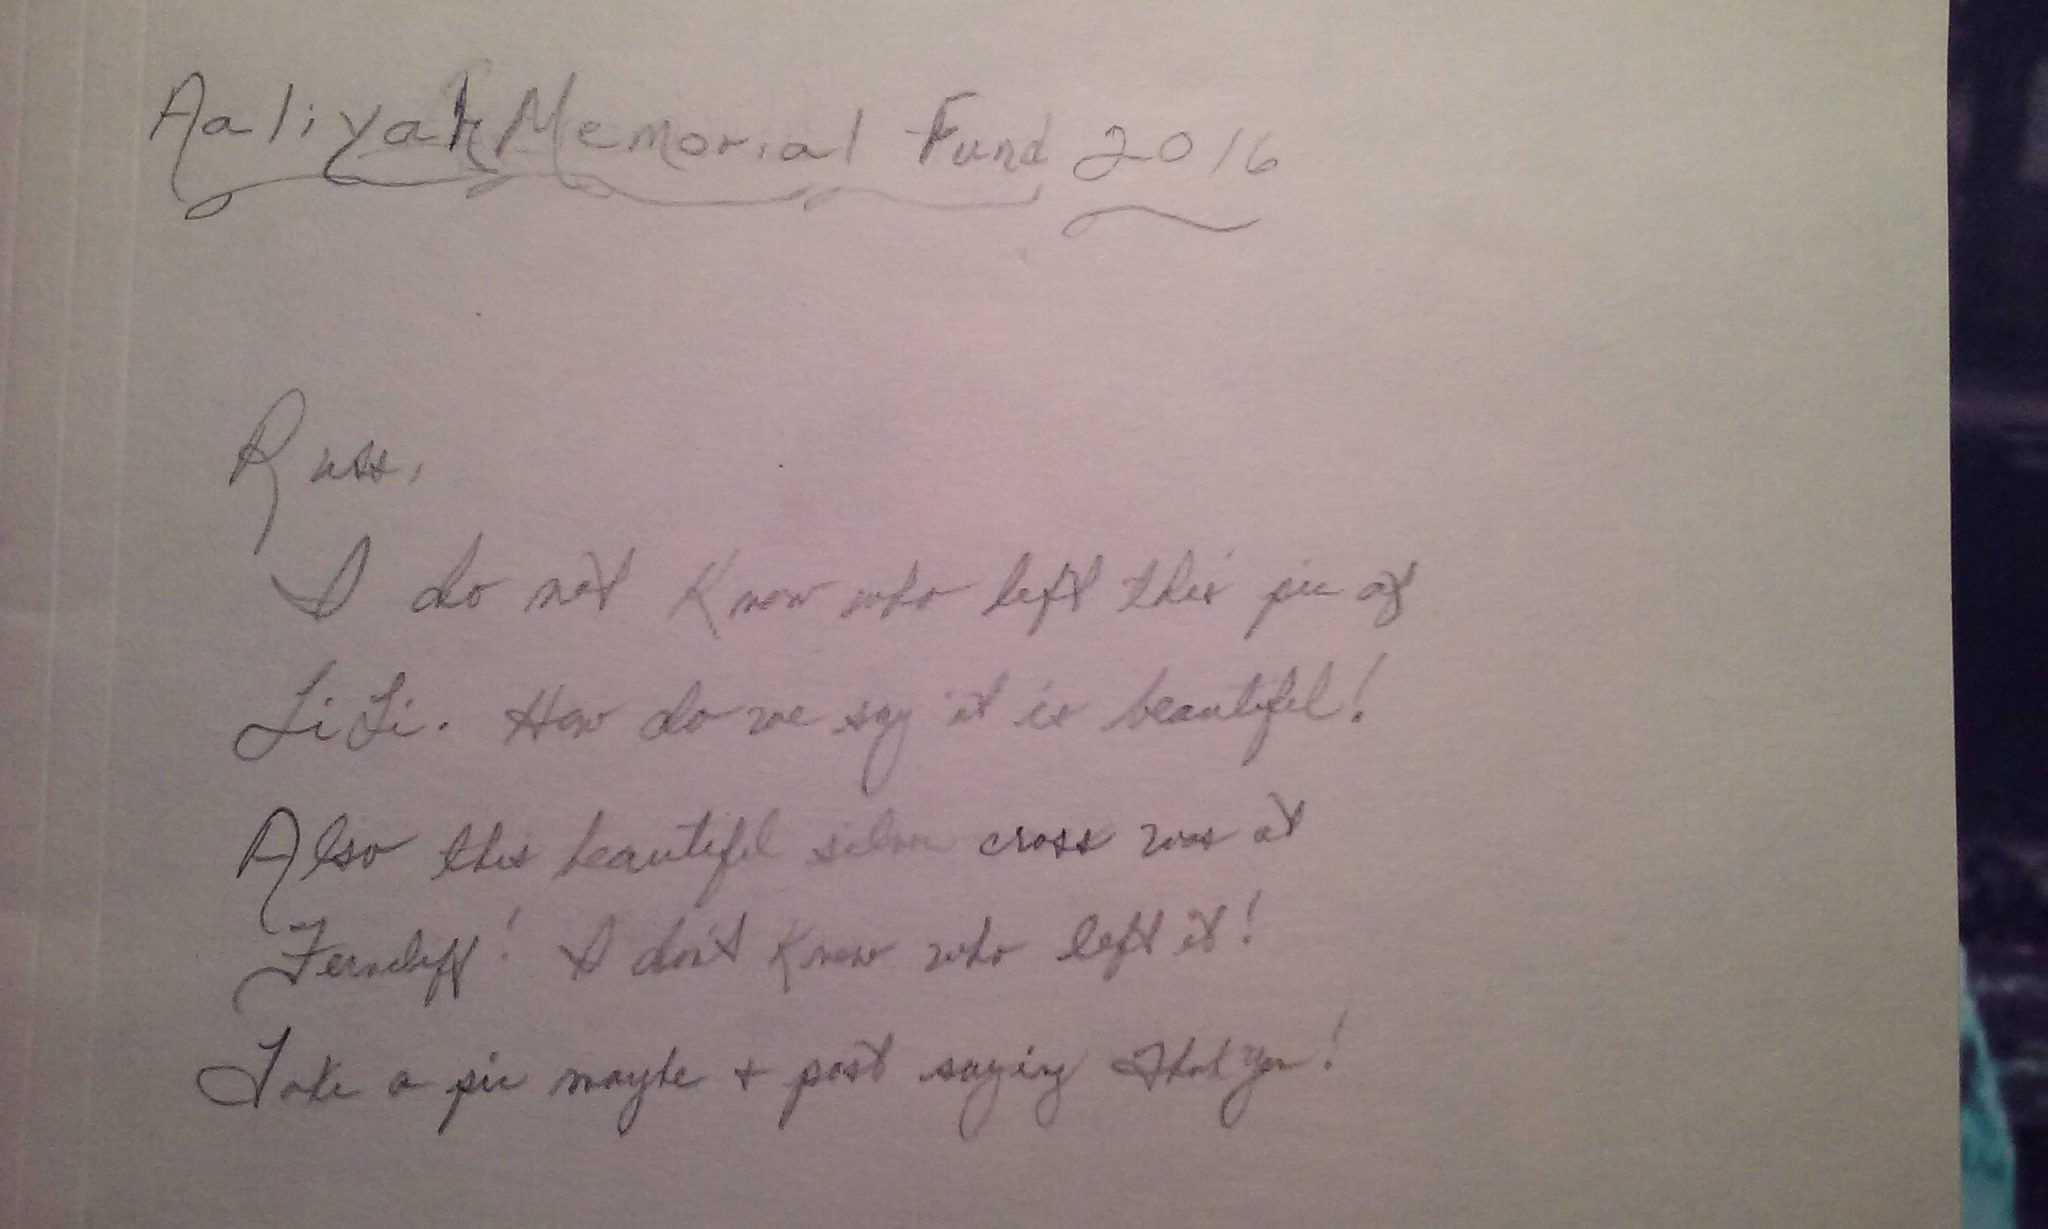 Aaliyah Memorial Fund 2016
Russ,
I do not know who left this pic of
LiLi. How do we say it is beautiful!
Also this beautiful silver cross was at
Ferncliff! I don't know who left it!
Take a pic maybe + post saying Thank you!